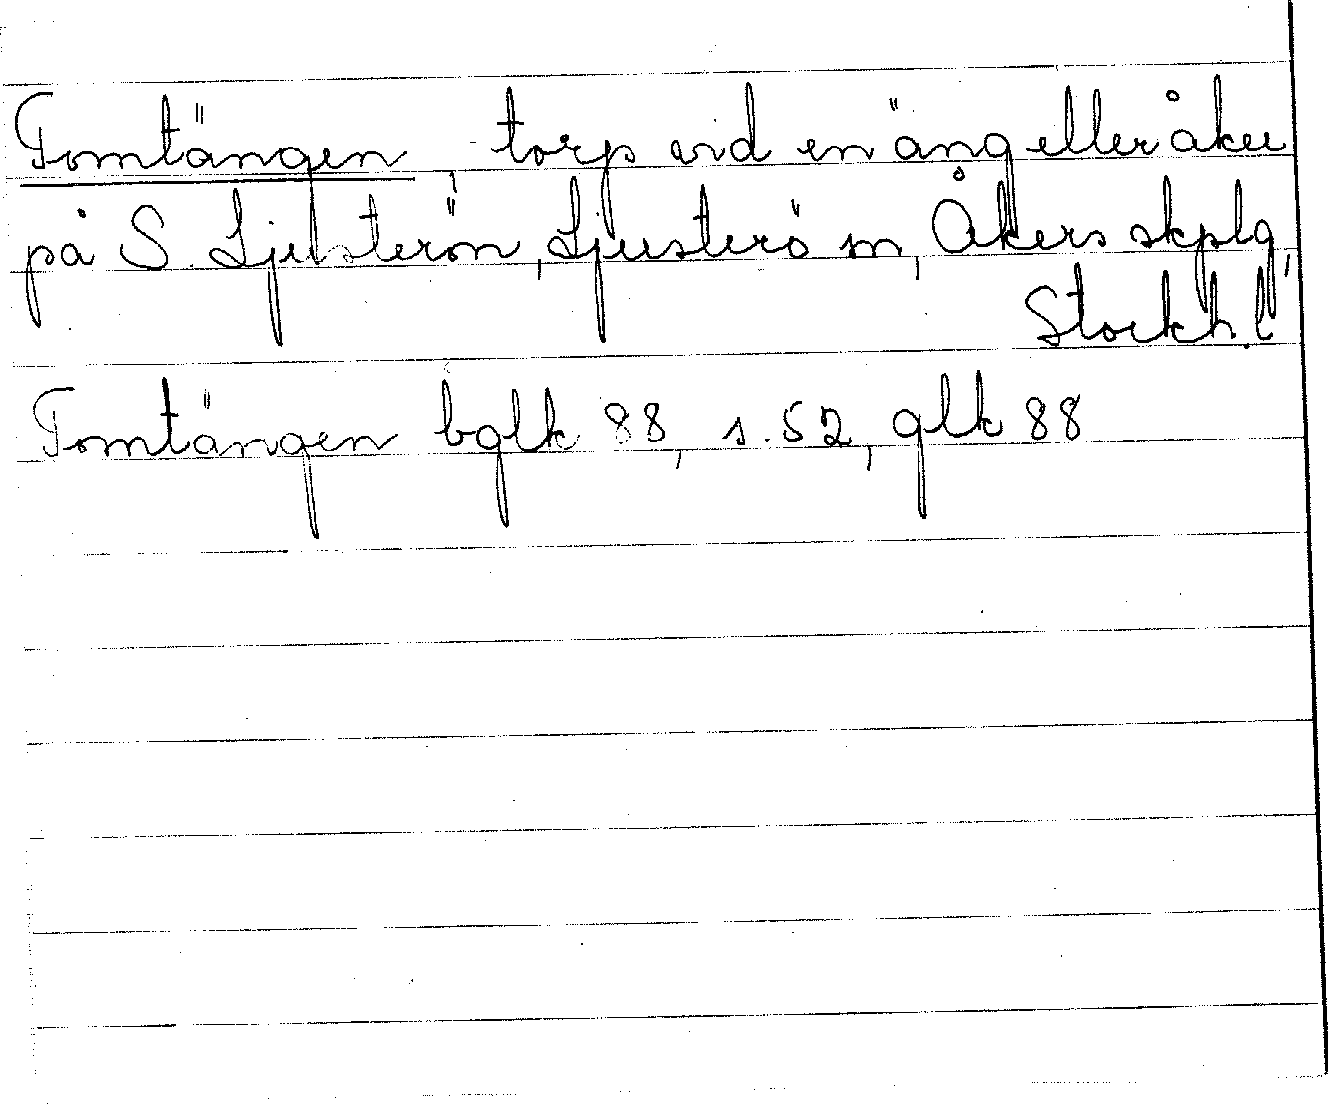 Tomtängen, torp vid en äng eller åker
på S. Ljusterön, Ljusterö sn, Åkers skplg,
Stockh. l
Tomtängen bglk 88, s. 52, glk 88